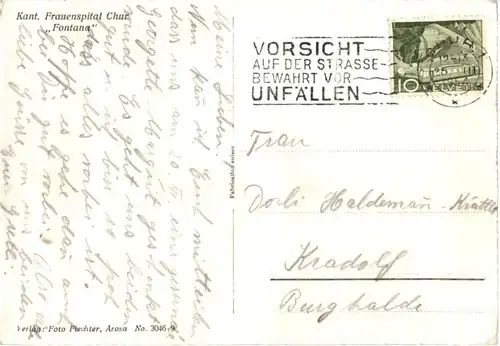 Kant. Frauenspital Chur
„Fontana"
Meine Lieben!
Nun kan ich Euch mitteilen
dass uns am 20. III eine gesunde
Georgette Margrit geschenkt
wurde. Es geht uns beiden
gut u. bin so froh
dass alles vorbei ist.
Hoffe es gehe dan auch
gut vorbei. Also
liebe Grüsse von uns beiden
Eure
Verlag: Foto Fiechter, Arosa No. 3046-9
VORSICHT
AUF DER STRASSE
BEWAHRT VOR
UNFÄLLEN
10
HELVETIA
Frau
Dorli Haldeman-Krättli
Kradolf
Burghalde